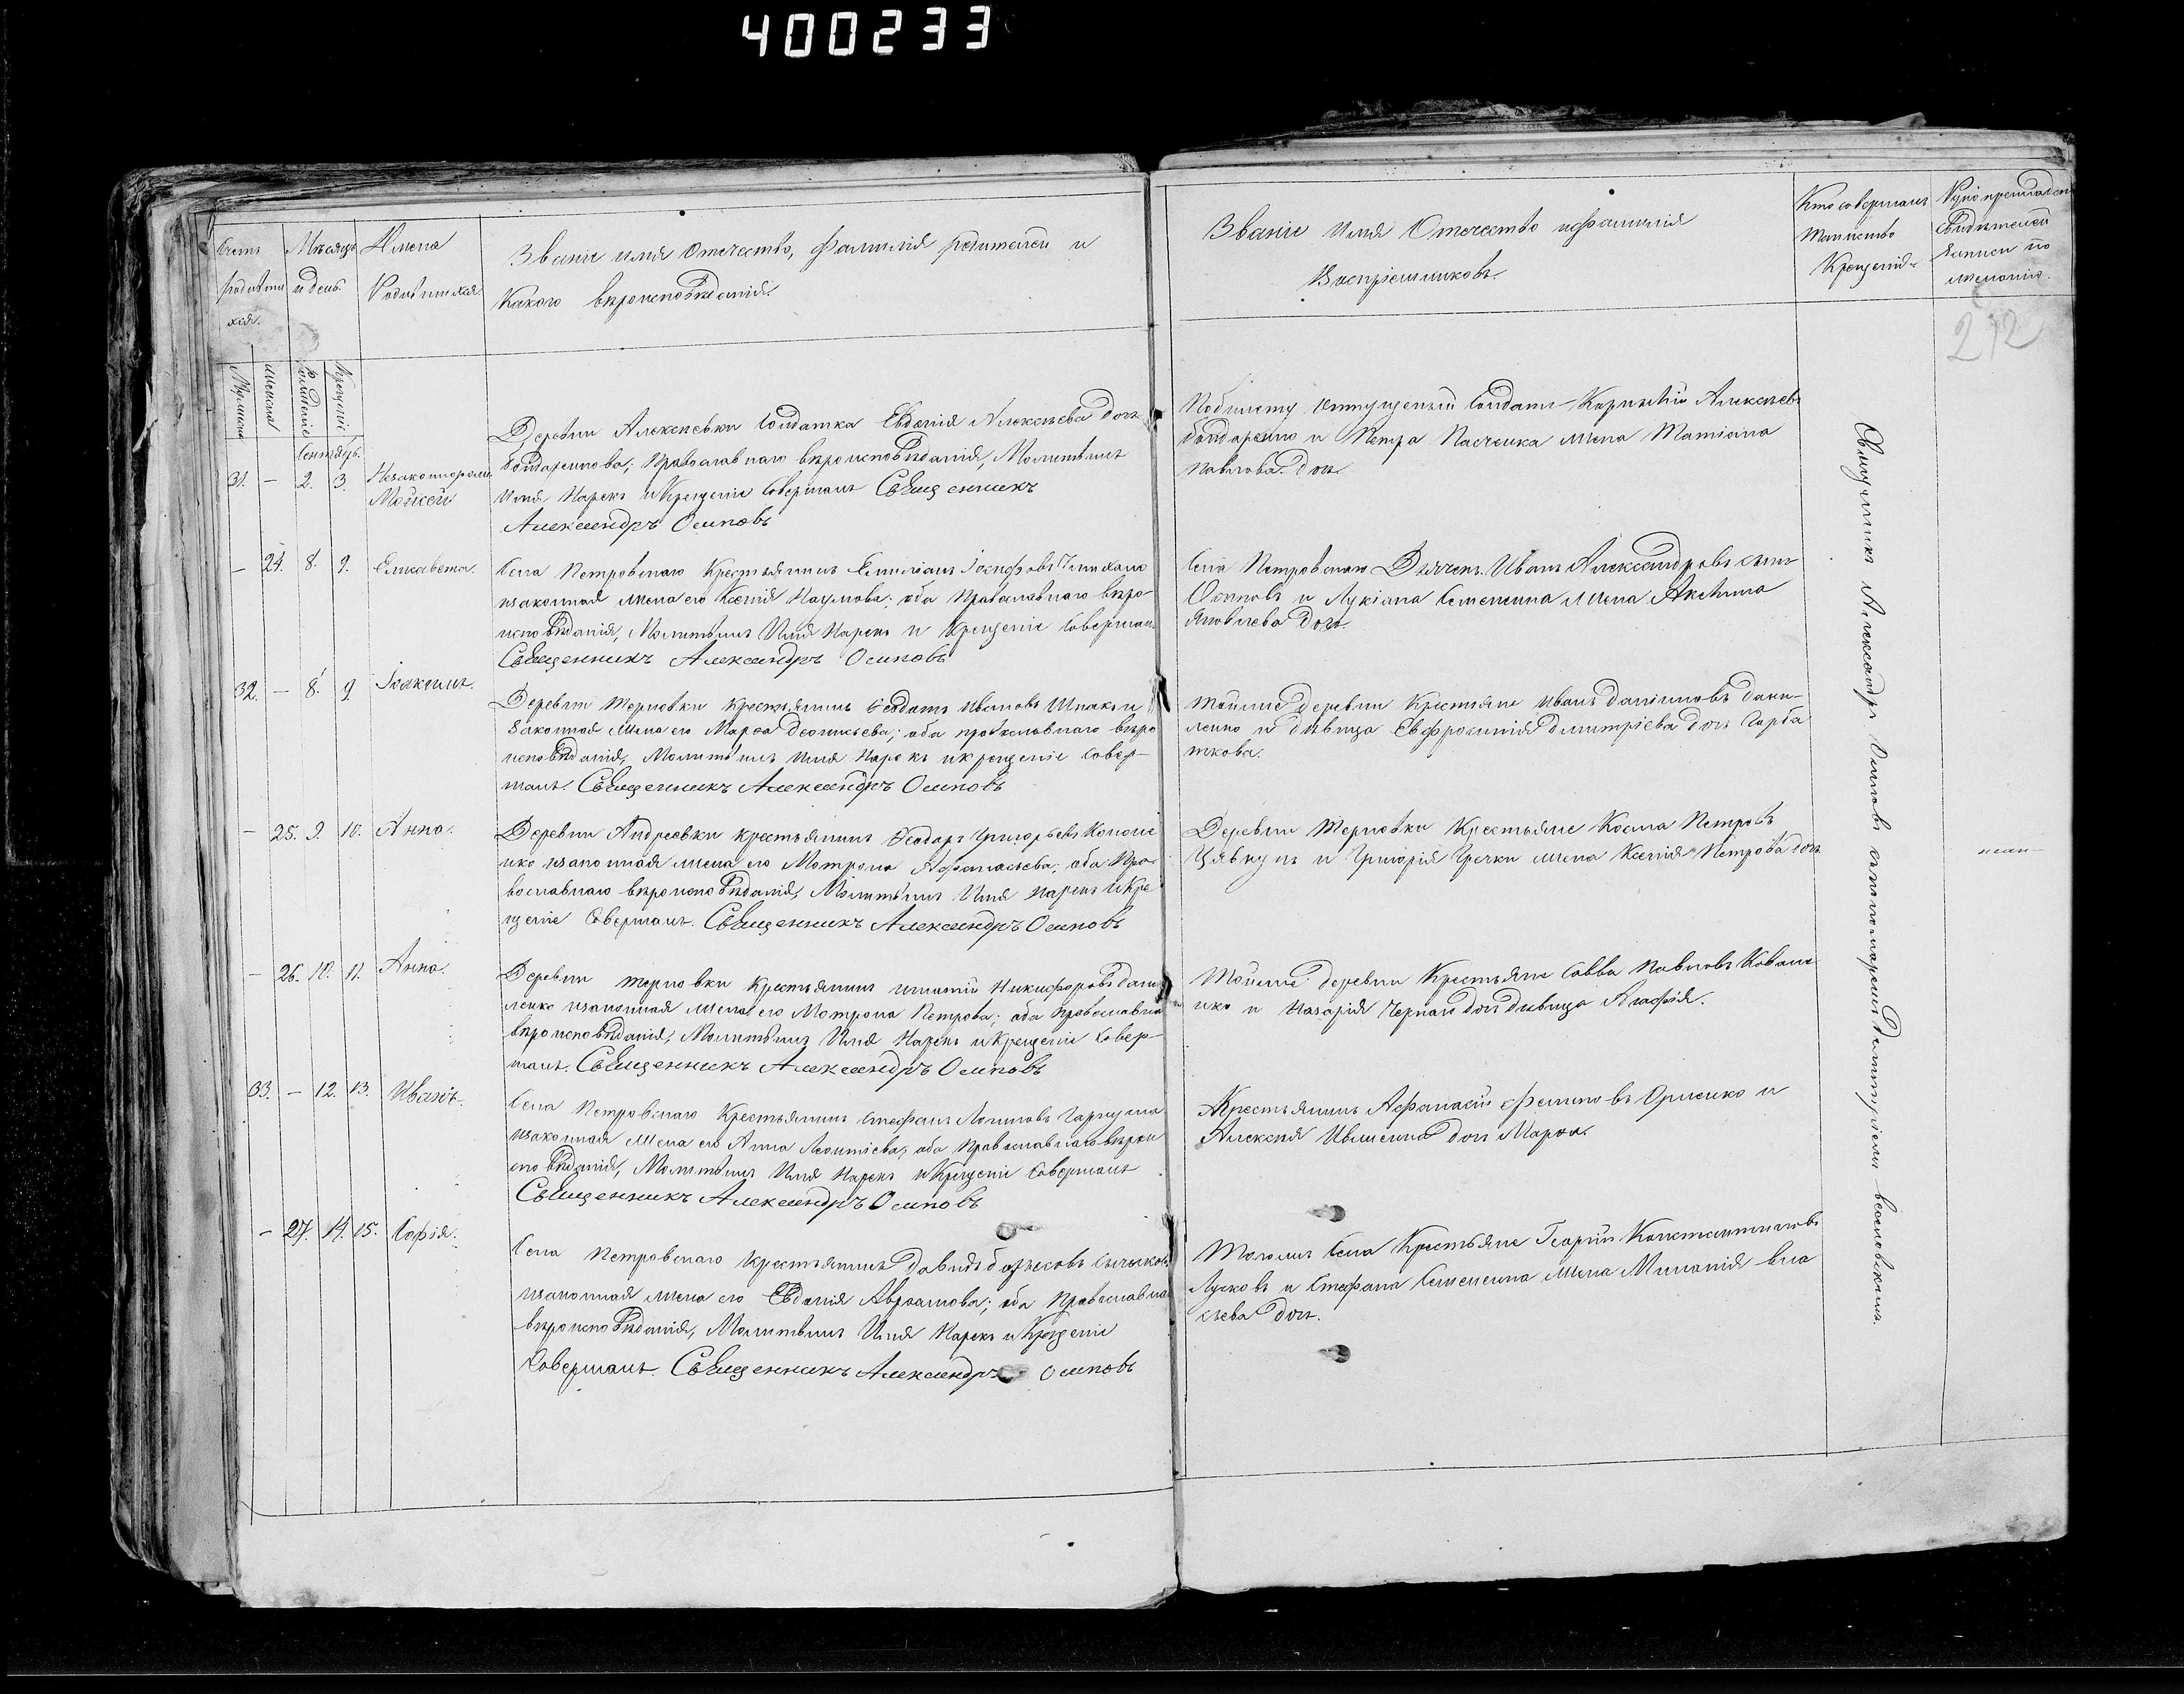 400233
Счетъ родившихся.
Мѣсяцъ и день.
Имена Родившихся.
Званіе имя Отечество, фамилія родителей и
Какого вѣроисповѣданія.
Званіе Имя Отечество и фамилія
Воспріемниковъ.
Кто совершалъ
Таинство
Крещенія.
Рукоприкладст
Свидѣтелей
Записи по
желанію.
212
Мужеска
женска
рожденіе
Крещеніе
Сентябрь
31. — 2. 3. Незаконнорожд
Мойсей
Деревни Алексѣевки Солдатка Евдокія Алексѣева дочь
Бондаренкова, Православнаго вѣроисповѣданія, Молитвилъ
Имя Нарекъ и Крещеніе Совершалъ Священникъ
Александръ Осиповъ
По билету Отпущеный Солдатъ Корнилій Алексѣевъ
Бондаренко и Петра Пасченка жена Татіана
Павлова дочь.
— 24. 8. 9. Елисавета.
Села Петровскаго Крестьянинъ Емиліанъ Іосифовъ
и законная жена его Ксенія Наумова; оба Православнаго вѣро-
исповѣданія, Молитвилъ Имя Нарекъ и Крещеніе Совершалъ
Священникъ Александръ Осиповъ
Села Петровскаго Дьячекъ Иванъ Александровъ сынъ
Осиповъ и Лукіана Семенина жена Акелина
Яковлева дочь.
32. — 8. 9. Іоакимъ.
Деревни Терновки Крестьянинъ Феодотъ Ивановъ Шпакъ и
Законная жена его Марфа Леонтьева; оба православнаго вѣро
исповѣданія, Молитвилъ имя Нарекъ и крещеніе совер-
шалъ. Священникъ Александръ Осиповъ
Тойже деревни Крестьяне Иванъ Даниловъ Дани-
ленко и дѣвица Евфросинія Димитріева дочь Горба
ткова.
— 25. 9. 10. Анна.
Деревни Андреевки крестьянинъ Феодоръ Григорьевъ Кононе
нко и законная жена его Матрона Афанасьева; оба Пра-
вославнаго вѣроисповѣданія, Молитвилъ Имя нарекъ и Кре
щеніе Совершалъ. Священникъ Александръ Осиповъ
Деревни Терновки Крестьяне Косма Петровъ
Цявкунъ и Григорія Гречки жена Ксенія Петрова дочь
— 26. 10. 11. Анна.
Деревни терновки Крестьянинъ Игнатій Никифоровъ Дани
ленко и законная жена его Мотрона Петрова; оба Православна
вѣроисповѣданія, Молитвилъ Имя Нарекъ и Крещеніе Совер-
шалъ. Священникъ Александръ Осиповъ
Тойже деревни Крестьяне Савва Павловъ Ковале
нко и Назарія Чернаго дочь дѣвица Агафія.
33. — 12. 13. Иванъ.
Села Петровскаго Крестьянинъ Стефанъ Логиновъ Гаркуша
и законная жена его Анна Леонтіева; оба Православнаго вѣрои
сповѣданія, Молитвилъ Имя Нарекъ и Крещеніе Совершалъ
Священникъ Александръ Осиповъ
Крестьянинъ Афанасій Филиповъ Орленко и
Алексѣя Ивженка дочь Марфа.
— 27. 14. 15. Софія.
Села Петровскаго крестьянинъ Давидъ Борисовъ
и законная жена его Евдокія Авраамова; оба Православна
вѣроисповѣданія, Молитвилъ Имя Нарекъ и Крещеніе
Совершалъ. Священникъ Александръ Осиповъ
Тогожъ Села Крестьяне Георгій Константиновъ
Лусковъ и Стефана Семенина жена Меланія Вла
сьева дочь.
Священникъ Александръ Осиповъ съ пономаремъ Димитріемъ Веселовскимъ.